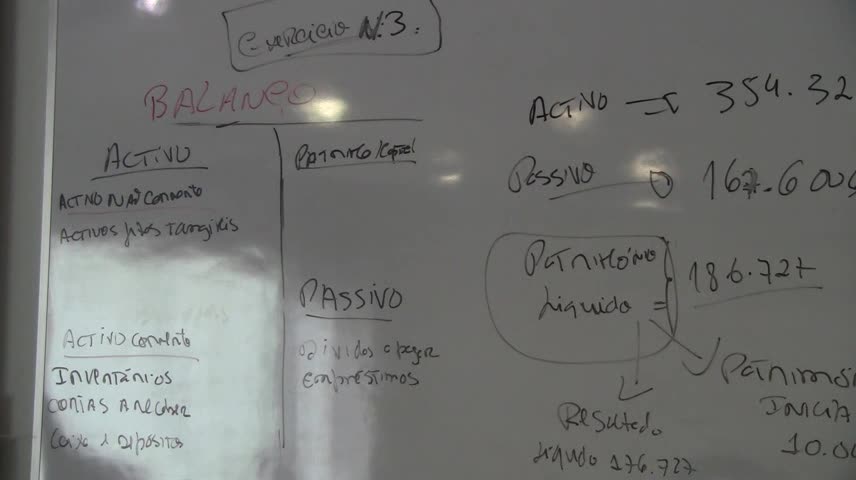 Exercicio N.3.
BALANÇO
ACTIVO
ACTIVO NÃO Corrente
ACTIVOS fixos Tangiveis
ACTIVO Corrente
INVENTÁRIOS
CONTAS A Receber
Caixa e Depósitos
PASSIVO
Dívidas a pagar
Empréstimos
ACTIVO 354.32
PASSIVO
PATRIMÓNIO
Líquido = 186.727
Resultado
Líquido 176.727
PATRIMÓ
INICIA
10.00